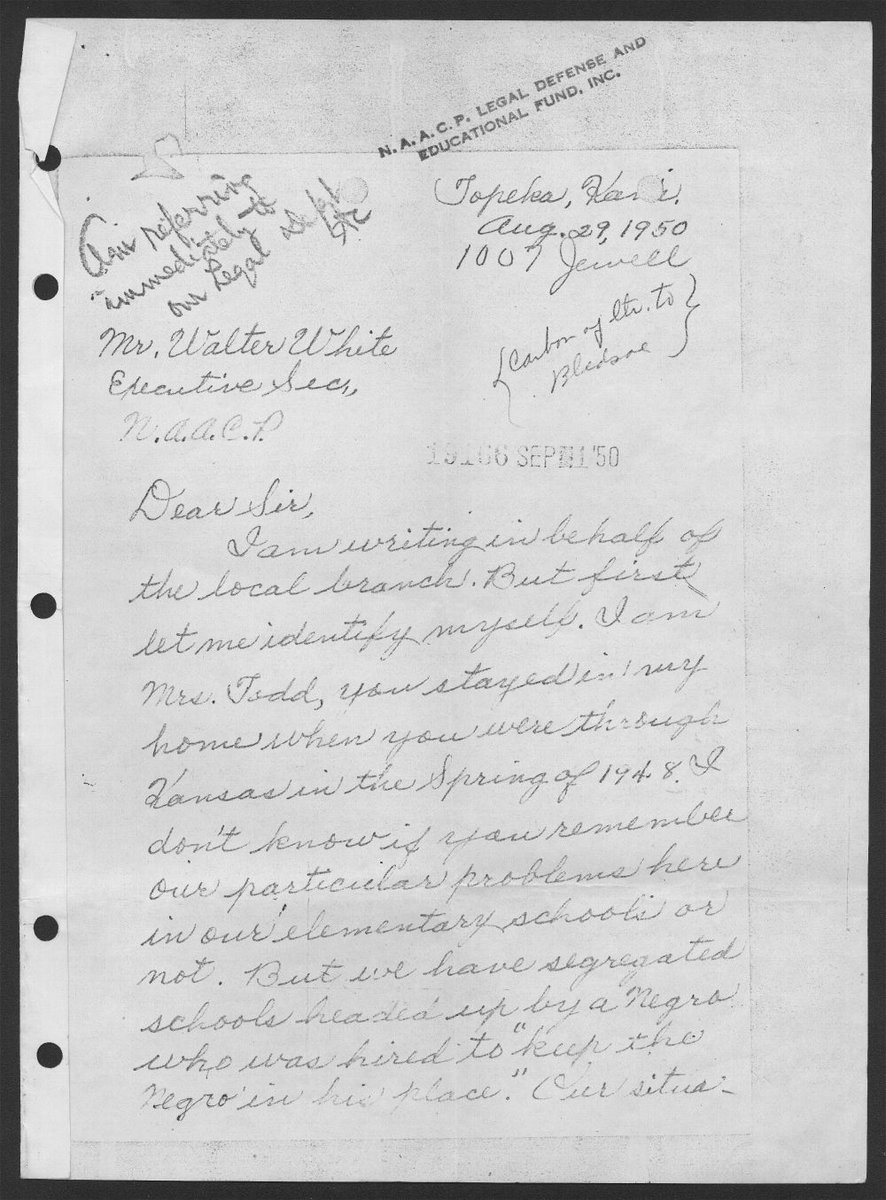 N.A.A.C.P. LEGAL DEFENSE AND
EDUCATIONAL FUND, INC.
Am referring
immediately to
our Legal Dept
Topeka, Kans.
Aug. 29, 1950
1007 Jewell
{Carbon of ltr. to
Bledsoe}
Mr. Walter White
Executive Sec.,
N.A.A.C.P.
19166 SEP 1 '50
Dear Sir,
I am writing in behalf of
the local branch. But first
let me identify myself. I am
Mrs. Todd, you stayed in my
home when you were through
Kansas in the Spring of 1948. I
don't know if you remember
our particular problems here
in our elementary schools or
not. But we have segregated
schools headed up by a Negro
who was hired to "keep the
Negro in his place." Our situa-